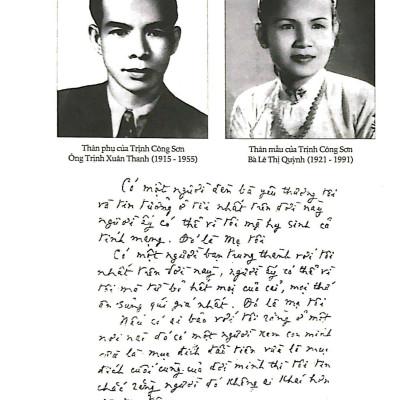 Thân phụ của Trịnh Công Sơn
Ông Trịnh Xuân Thanh (1915 - 1955)
Thân mẫu của Trịnh Công Sơn
Bà Lê Thị Quỳnh (1921 - 1991)
Có một người đàn bà yêu thương tôi
và tin tưởng ở tôi nhất trên đời này
người ấy có thể vì tôi mà hy sinh cả
tính mạng. Đó là Mẹ tôi
Có một người bạn trung thành với tôi
nhất trên đời này, người ấy có thể vì
tôi mà từ bỏ hết mọi của cải, mọi thứ
ân sủng quí giá nhất. Đó là mẹ tôi
Nếu có ai bảo với tôi rằng ở một
nơi nào đó có một người xem con mình
vừa là mục đích đầu tiên vừa là mục
đích cuối cùng của đời mình thì tôi tin
chắc rằng người đó không ai khác hơn